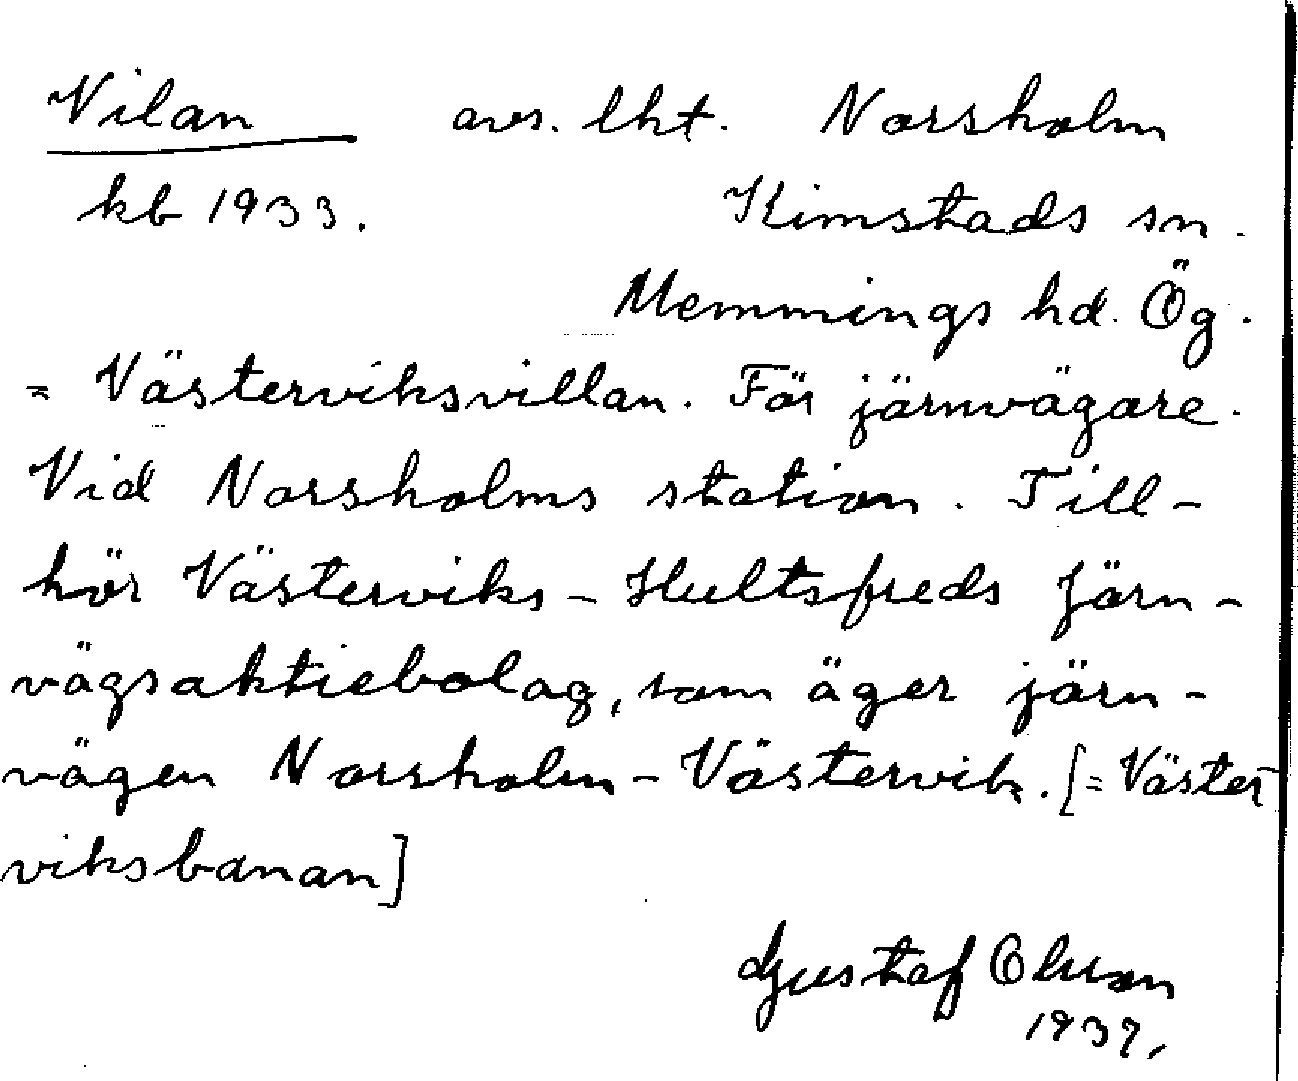 Vilan avs. lht. Norsholm
kb 1933. Kimstads sn.
Memmings hd. Ög.
= Västerviksvillan. För järnvägare.
Vid Norsholms station. Till-
hör Västerviks-Hultsfreds Järn-
vägsaktiebolag, som äger järn-
vägen Norsholm-Västervik. [= Väster-
viksbanan]
Gustaf Olsson
1937.